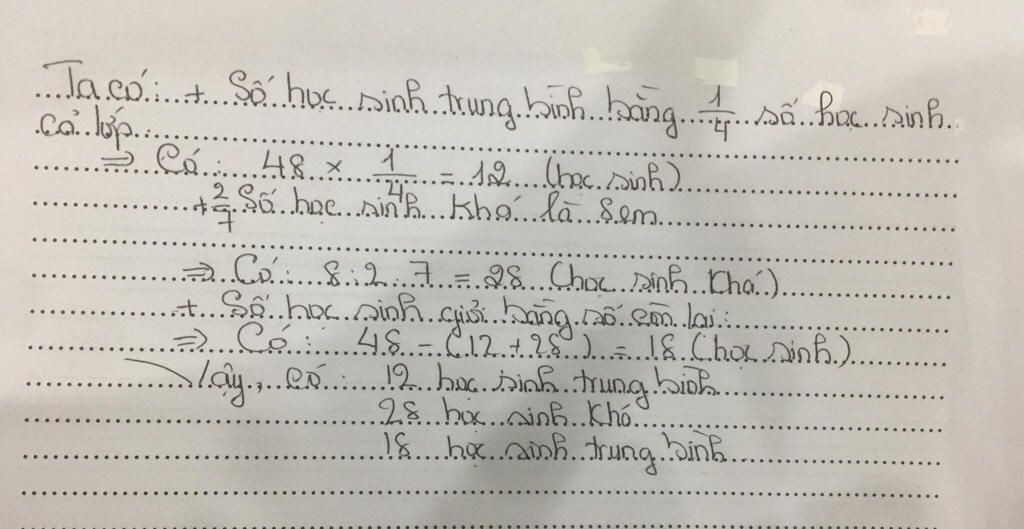 Ta có: + Số học sinh trung bình bằng 1/4 số học sinh
cả lớp
=> Có: 48 x 1/4 = 12 (học sinh)
+ 2/7 Số học sinh khá là 8 em
=> Có: 8 : 2 . 7 = 28 (học sinh khá)
+ Số học sinh giỏi bằng số em lại:
=> Có: 48 - (12 + 28) = 18 (học sinh)
Vậy, có: 12 học sinh trung bình
28 học sinh khá
18 học sinh trung bình